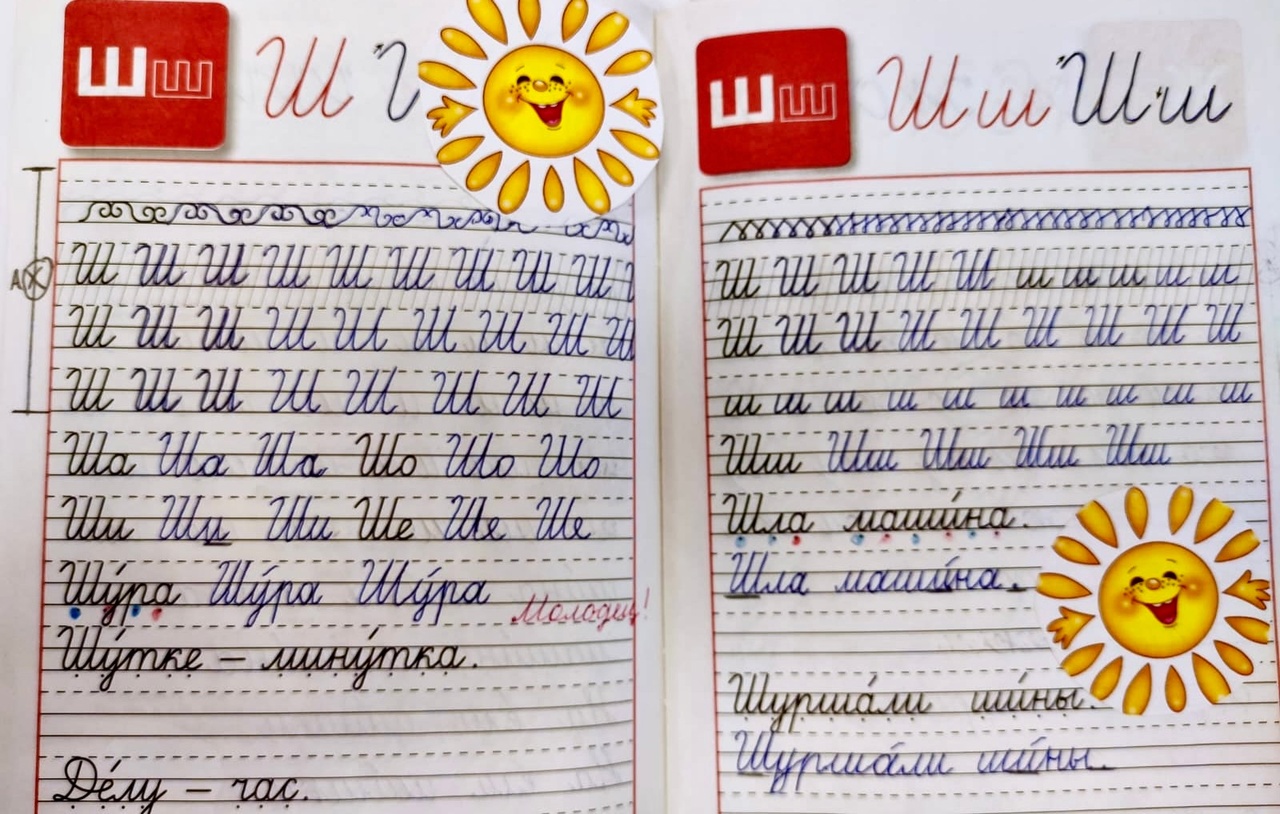 Шш Ш
А Ж
Ш Ш Ш Ш Ш Ш Ш Ш Ш
Ш Ш Ш Ш Ш Ш Ш Ш Ш
Ш Ш Ш Ш Ш Ш Ш Ш
Ша Ша Ша Шо Шо Шо
Ши Ши Ши Ше Ше Ше
Шу́ра Шу́ра Шу́ра Молодец!
Шу́тке – мину́тка.
Де́лу – час.
Шш Ш ш Ш ш
Ш Ш Ш Ш Ш ш ш ш ш ш
Ш Ш Ш Ш Ш Ш Ш Ш Ш
ш ш ш ш ш ш ш ш ш ш
Шш Шш Шш Шш Шш
Шла маши́на.
Шла маши́на.
Шурша́ли ши́ны.
Шурша́ли ши́ны.